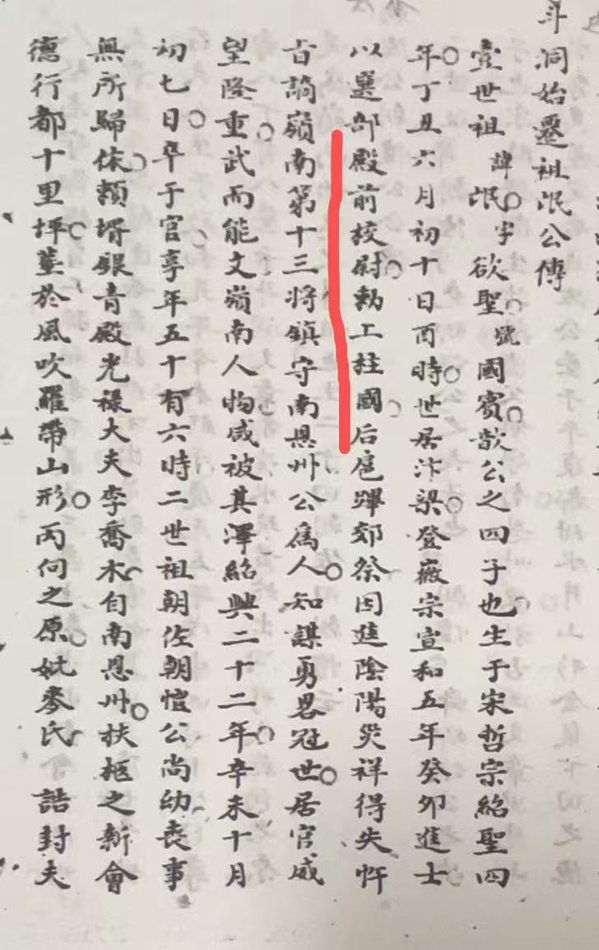 斗洞始遷祖泯公傳
壹世祖諱泯字欲聖號國賓歆公之四子也生于宋哲宗紹聖四
年丁丑六月初十日酉時世居汴梁登徽宗宣和五年癸卯進士
以選部殿前校尉勅工柱國后扈蹕郊祭因進陰陽災祥得失忤
旨謫嶺南第十三將鎮守南恩州公爲人知謀勇畧冠世居官威
望隆重武而能文嶺南人物咸被其澤紹興二十二年辛未十月
初七日卒于官享年五十有六時二世祖朝佐朝愷公尚幼喪事
無所歸依頼壻銀青殿光禄大夫李喬木自南恩州扶柩之新會
德行都十里坪塟於風吹羅帶山形丙向之原妣麥氏誥封夫